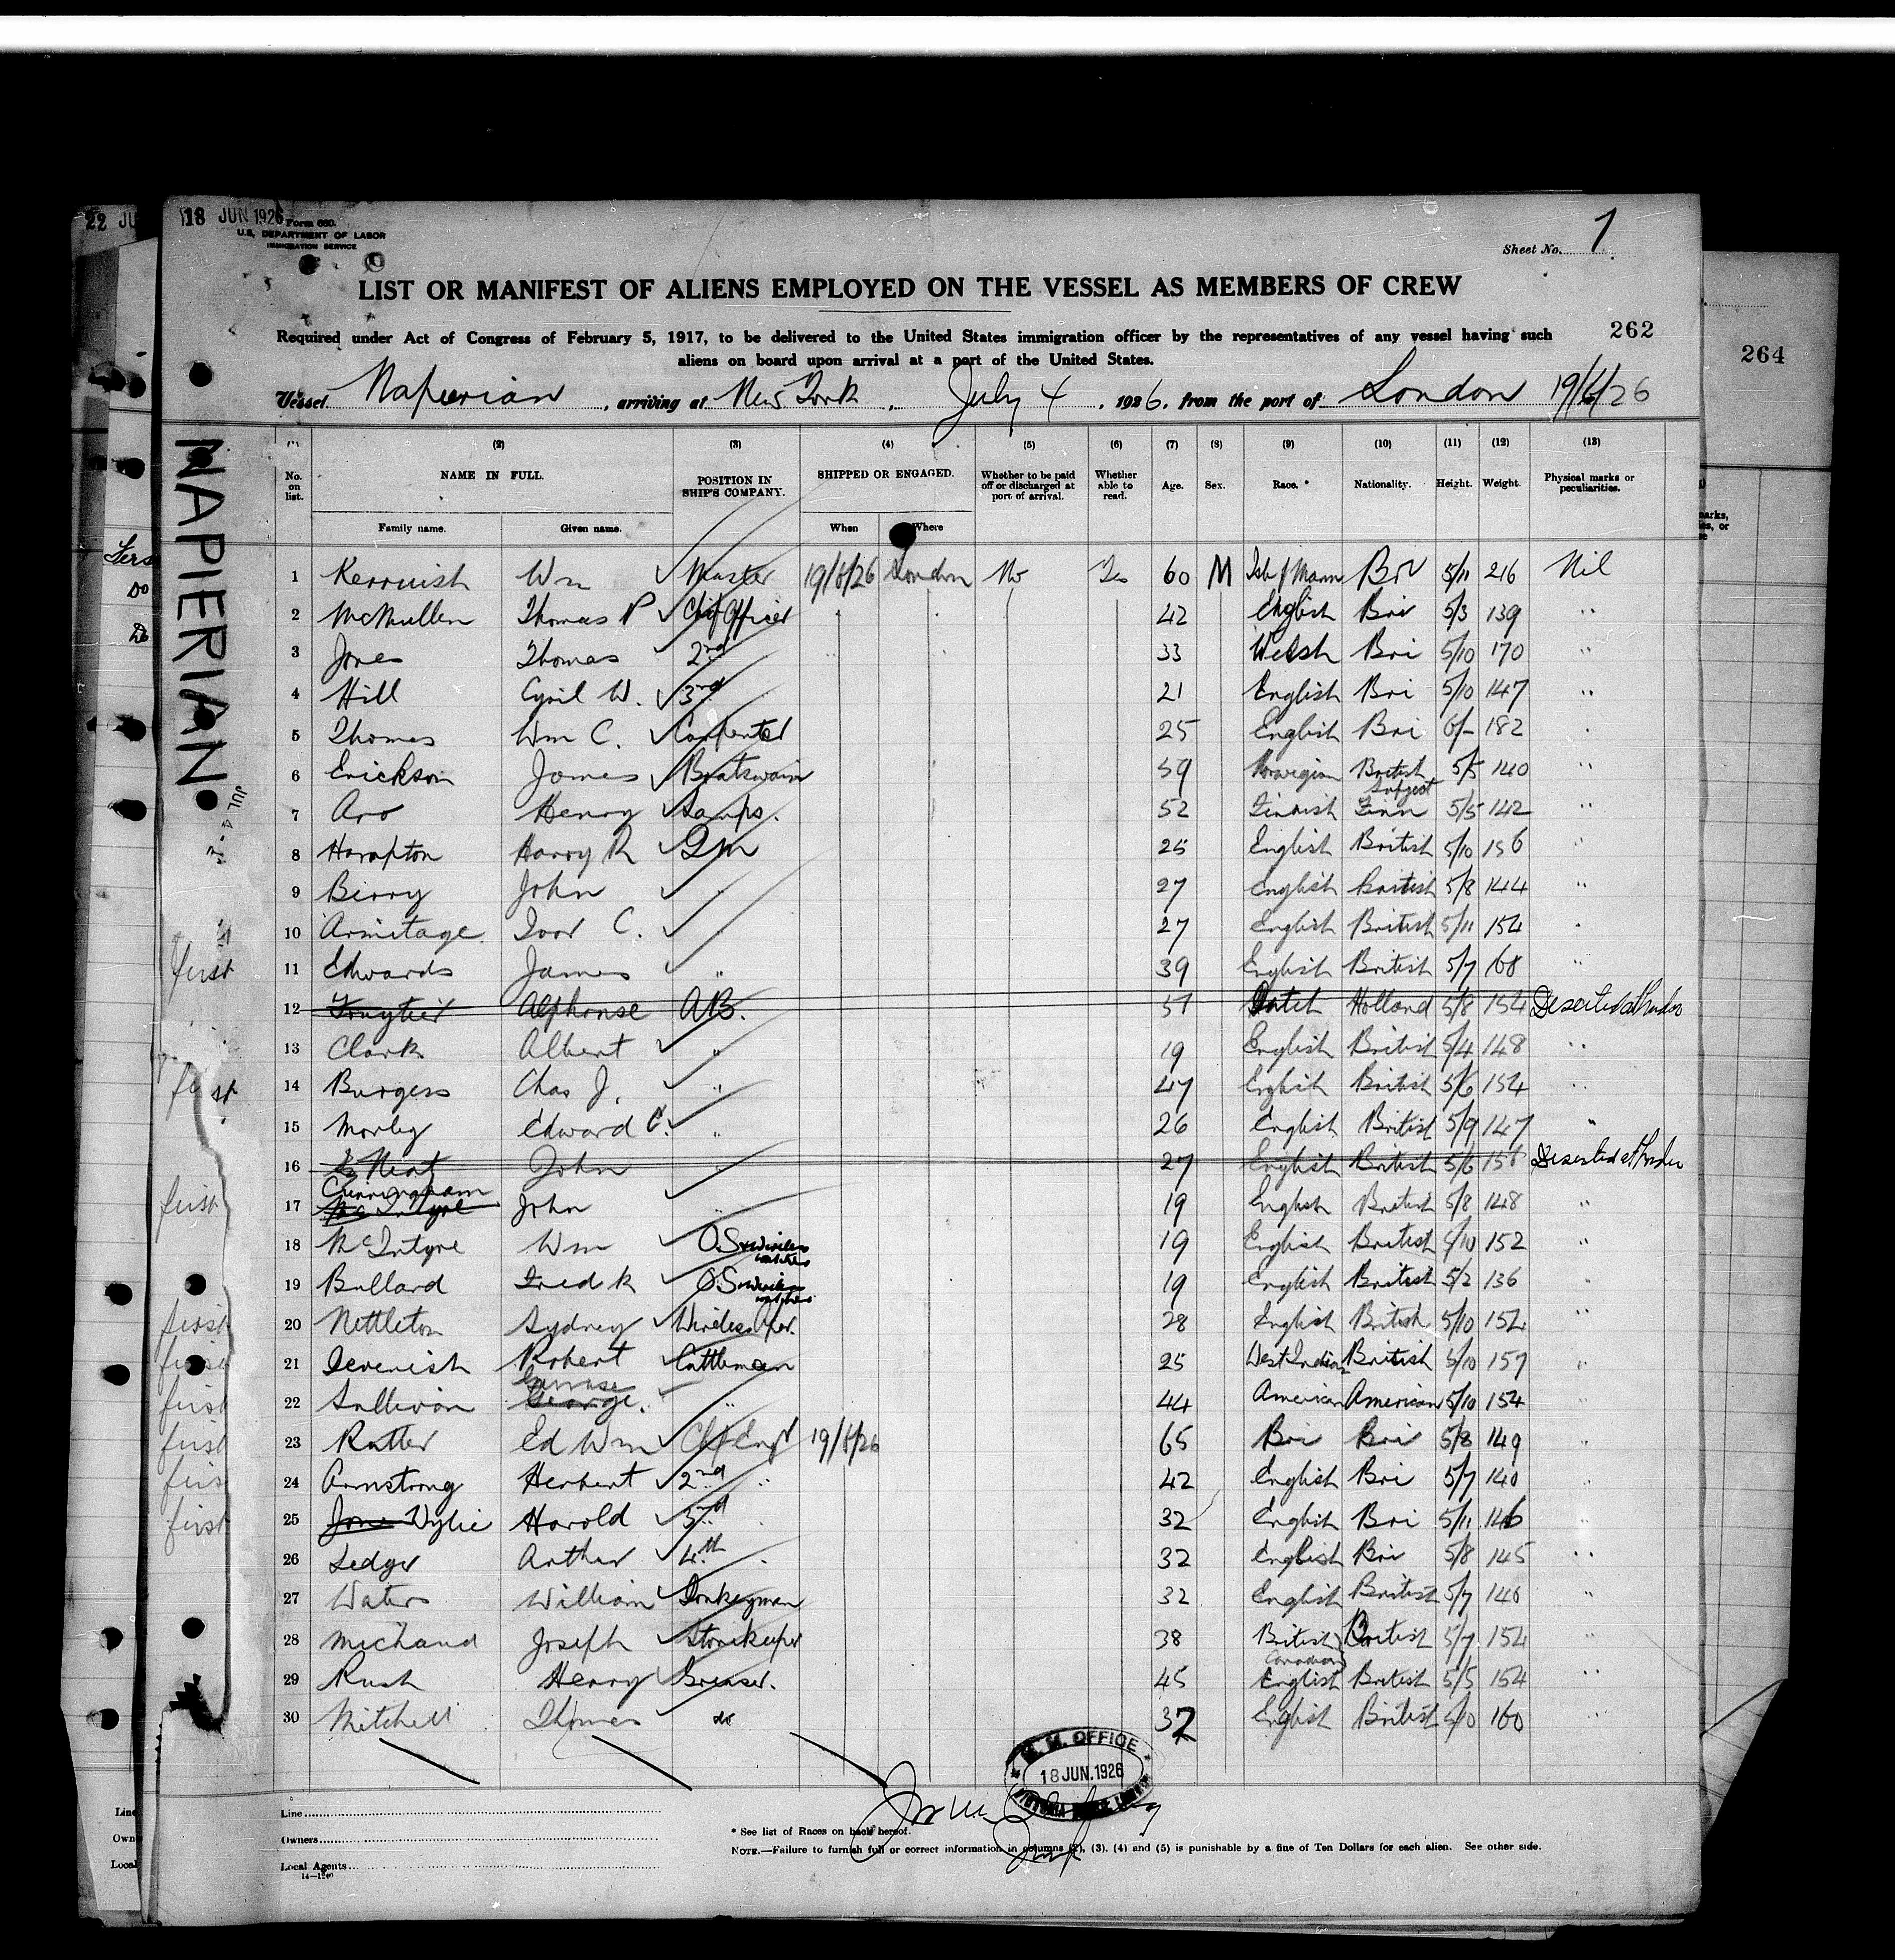 22 JU
18 JUN 1926
Form 680.
U.S. DEPARTMENT OF LABOR
IMMIGRATION SERVICE
Sheet No. 1
LIST OR MANIFEST OF ALIENS EMPLOYED ON THE VESSEL AS MEMBERS OF CREW
Required under Act of Congress of February 5, 1917, to be delivered to the United States immigration officer by the representatives of any vessel having such
aliens on board upon arrival at a port of the United States.
262
264
Vessel Napierian, arriving at New York, July 4, 1926, from the port of London 19/6/26
NAPIERIAN
(2) (3) (4) (5) (6) (7) (8) (9) (10) (11) (12) (13)
No. on list. NAME IN FULL. POSITION IN SHIP'S COMPANY. SHIPPED OR ENGAGED. Whether to be paid off or discharged at port of arrival. Whether able to read. Age. Sex. Race.* Nationality. Height. Weight. Physical marks or peculiarities.
Family name. Given name. When Where
1 Kerruish Wm Master 19/6/26 London No Yes 60 M Isle of Mann Bri 5/11 216 Nil
2 McMullen Thomas P Chief Officer 42 English Bri 5/3 139 "
3 Jones Thomas 2nd 33 Welsh Bri 5/10 170 "
4 Hill Cyril W. 3rd 21 English Bri 5/10 147 "
5 Thomas Wm C. Carpenter 25 English Bri 6/- 182
6 Erickson James Boatswain 59 Norwegian British Subject 5/5 140 "
7 Aro Henry Lamps. 52 Finnish Finn 5/5 142 "
8 Hampton Harry R QM 25 English British 5/10 156 "
9 Berry John " 27 English British 5/8 144 "
10 Armitage Ivor C. " 27 English British 5/11 154 "
first 11 Edwards James " 39 English British 5/7 168 "
12 Alphonse AB. 51 Dutch Holland 5/8 154 Deserted at London
13 Clark Albert " 19 English British 5/4 148 "
first 14 Burgess Chas J. " 47 English British 5/6 154 "
15 Morley Edward C. " 26 English British 5/9 147 "
16 John " 27 English British 5/6 Deserted at London
first 17 Cunningham McIntyre John " 19 English British 5/8 148 "
18 McIntyre Wm O.S & wireless watcher 19 English British 5/10 152 "
19 Bullard Fredk O.S & wireless watcher 19 English British 5/2 136 "
first 20 Nettleton Sydney Wireless Oper. 28 English British 5/10 154 "
first 21 Devenish Robert Cattleman 25 West Indian British 5/10 157 "
first 22 Sullivan George. " 44 American American 5/10 154 "
first 23 Rutter Ed Wm Chf Engr 19/6/26 65 Bri Bri 5/8 149 "
first 24 Armstrong Herbert 2nd " 42 English Bri 5/7 140 "
first 25 Jones Wylie Harold 3rd " 32 English Bri 5/11 146 "
26 Ledger Arthur 4th " 32 English Bri 5/8 145 "
27 Waters William Donkeyman 32 English British 5/7 140 "
28 Michaud Joseph Storekeeper 38 British Canadian British 5/7 154 "
29 Rush Henry Greaser. 45 English British 5/5 154 "
30 Mitchell Thomas do 37 English British 5/10 160 "
M. M. OFFICE
18 JUN. 1926
Line
Owners
Local Agents
14-1240
* See list of Races on back hereof.
NOTE.—Failure to furnish full or correct information in columns (2), (3), (4) and (5) is punishable by a fine of Ten Dollars for each alien. See other side.